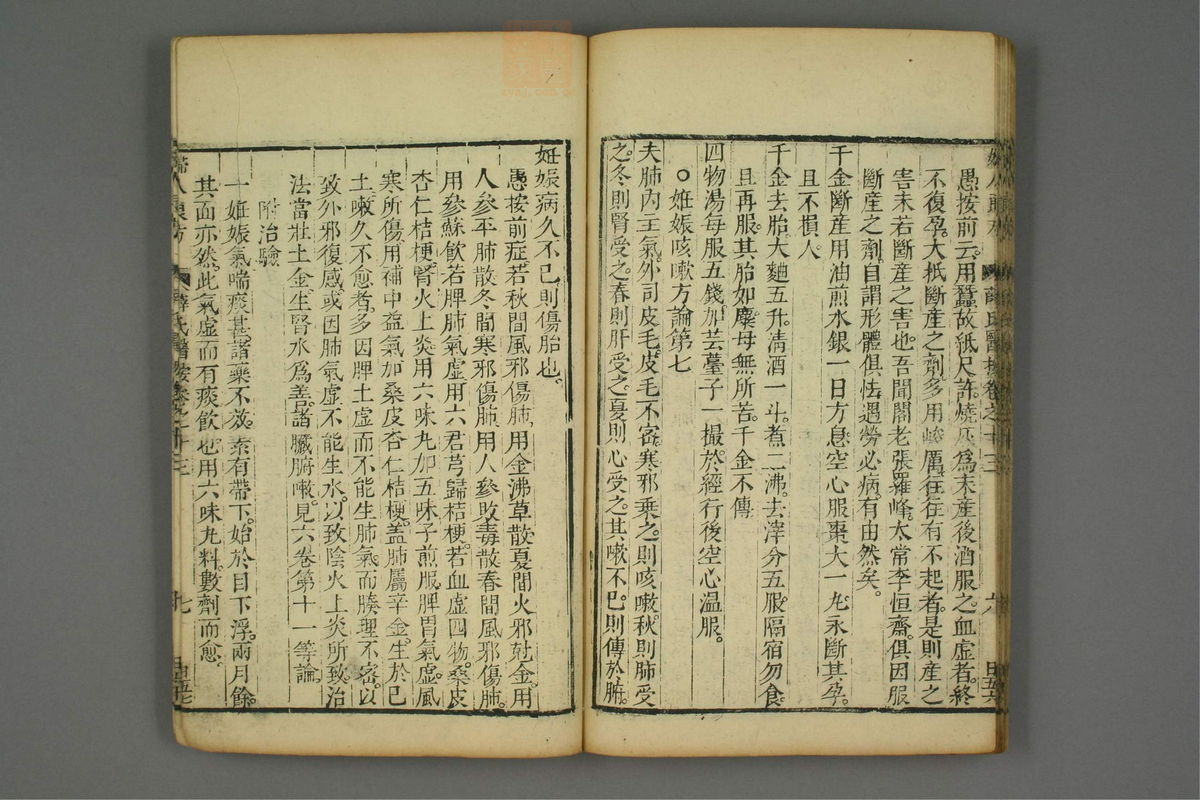 愚按前云。用蠶故紙尺許。燒灰爲末。產後酒服之。血虛者。終
不復孕。大抵斷產之劑。多用峻厲。往往有不起者。是則產之
害未若斷產之害也。吾聞閣老張羅峰。太常李恒齋。俱因服
斷產之劑。自謂形體俱怯。遇勞必病。有由然矣。
千金斷產用油煎水銀一日方息。空心服棗大一丸永斷其孕。
且不損人
千金去胎。大麯五升。清酒一斗。煮二沸。去滓分五服。隔宿勿食。
且再服。其胎如糜。母無所苦。千金不傳
四物湯每服五錢。加芸薹子一撮。於經行後空心温服。
○姙娠咳嗽方論第七
夫肺內主氣。外司皮毛。皮毛不密。寒邪乘之。則咳嗽。秋則肺受
之。冬則腎受之。春則肝受之。夏則心受之。其嗽不已。則傳於腑。
婦人良方
薛氏醫按卷之十三
姙娠病久不已。則傷胎也。
愚按前症。若秋間風邪傷肺。用金沸草散。夏間火邪尅金。用
人參平肺散。冬間寒邪傷肺。用人參敗毒散。春間風邪傷肺。
用參蘇飲。若脾肺氣虛。用六君芎歸桔梗。若血虛。四物。桑皮
杏仁桔梗。腎火上炎。用六味丸加五味子煎服。脾胃氣虛。風
寒所傷。用補中益氣加桑皮杏仁桔梗。蓋肺屬辛金。生於己
土。嗽久不愈者。多因脾土虛而不能生肺氣。而腠理不密。以
致外邪復感。或因肺氣虛不能生水。以致陰火上炎所致。治
法當壯土金。生腎水爲善。諸臟腑嗽。見六卷第十一等論
附治驗
一姙娠氣喘痰甚。諸藥不效。素有帶下。始於目下浮。兩月餘。
其面亦然。此氣虛而有痰飲也。用六味丸料數劑而愈。
婦人良方
薛氏醫按卷之十三
七